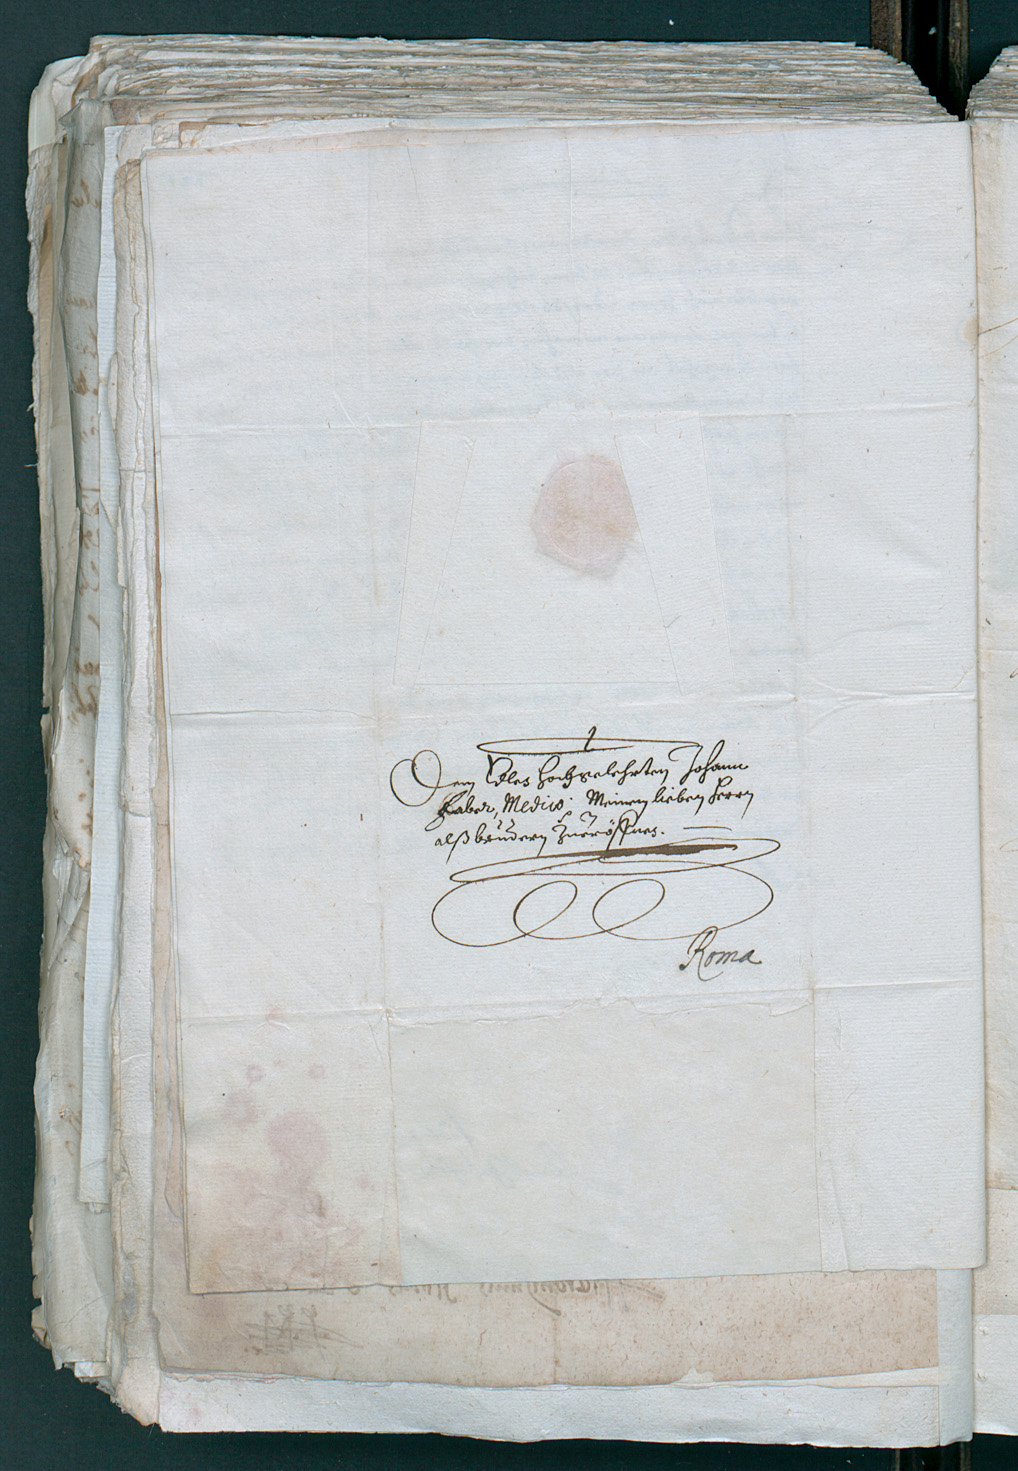 Dem Edles hochgelehrten Johann
Faber, Medico. Meinem lieben herrn
alß brudern Zueröffnes.
Roma